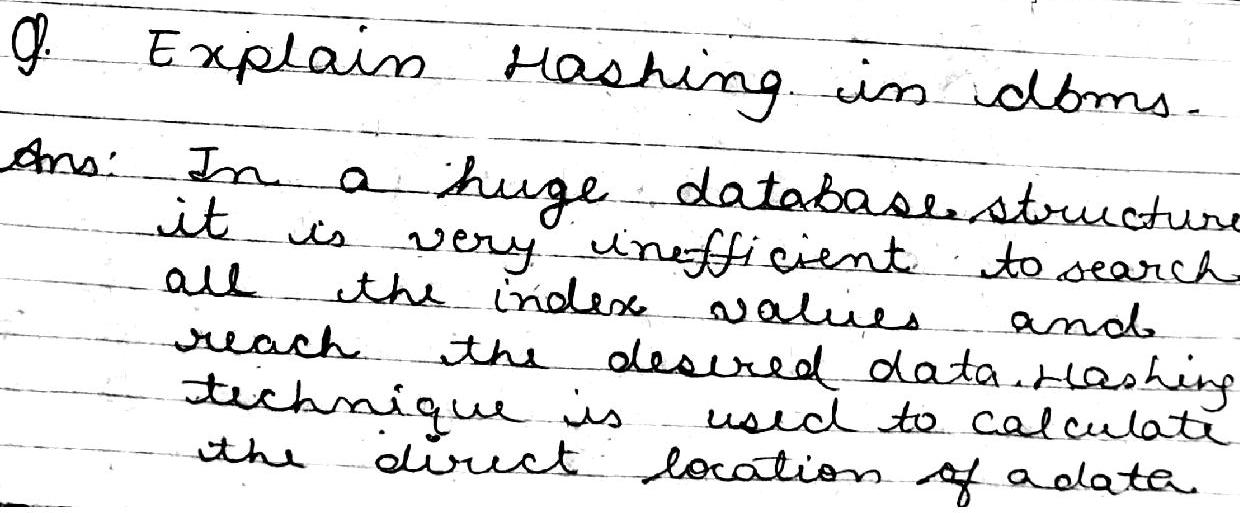 Q. Explain Hashing in dbms.
Ans: In a huge database structure
it is very inefficient to search
all the index values and
reach the desired data. Hashing
technique is used to calculate
the direct location of a data